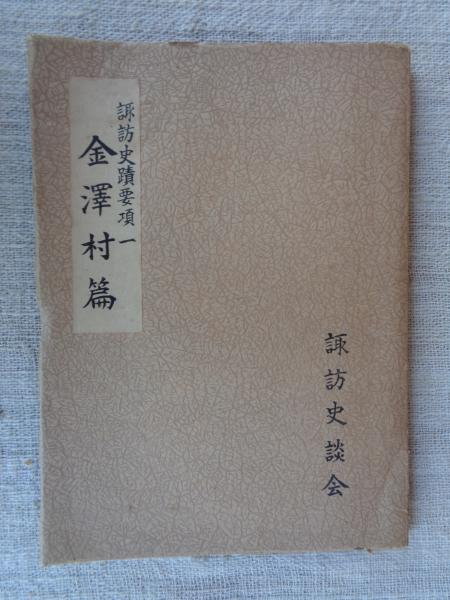 諏訪史蹟要項一
金澤村篇
諏訪史談会